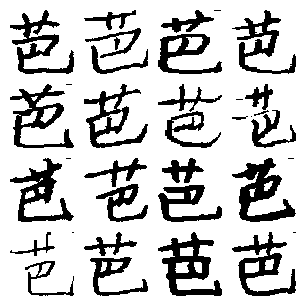 芭芭芭芭
芭芭芭芭
芭芭芭芭
芭芭芭芭